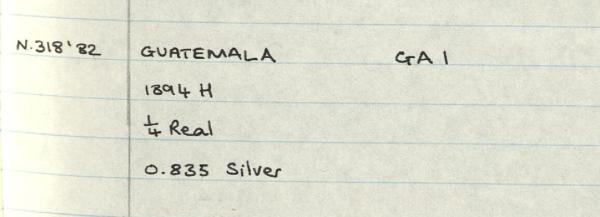 N.318'82 GUATEMALA GA 1
1894 H
1/4 Real
0.835 Silver